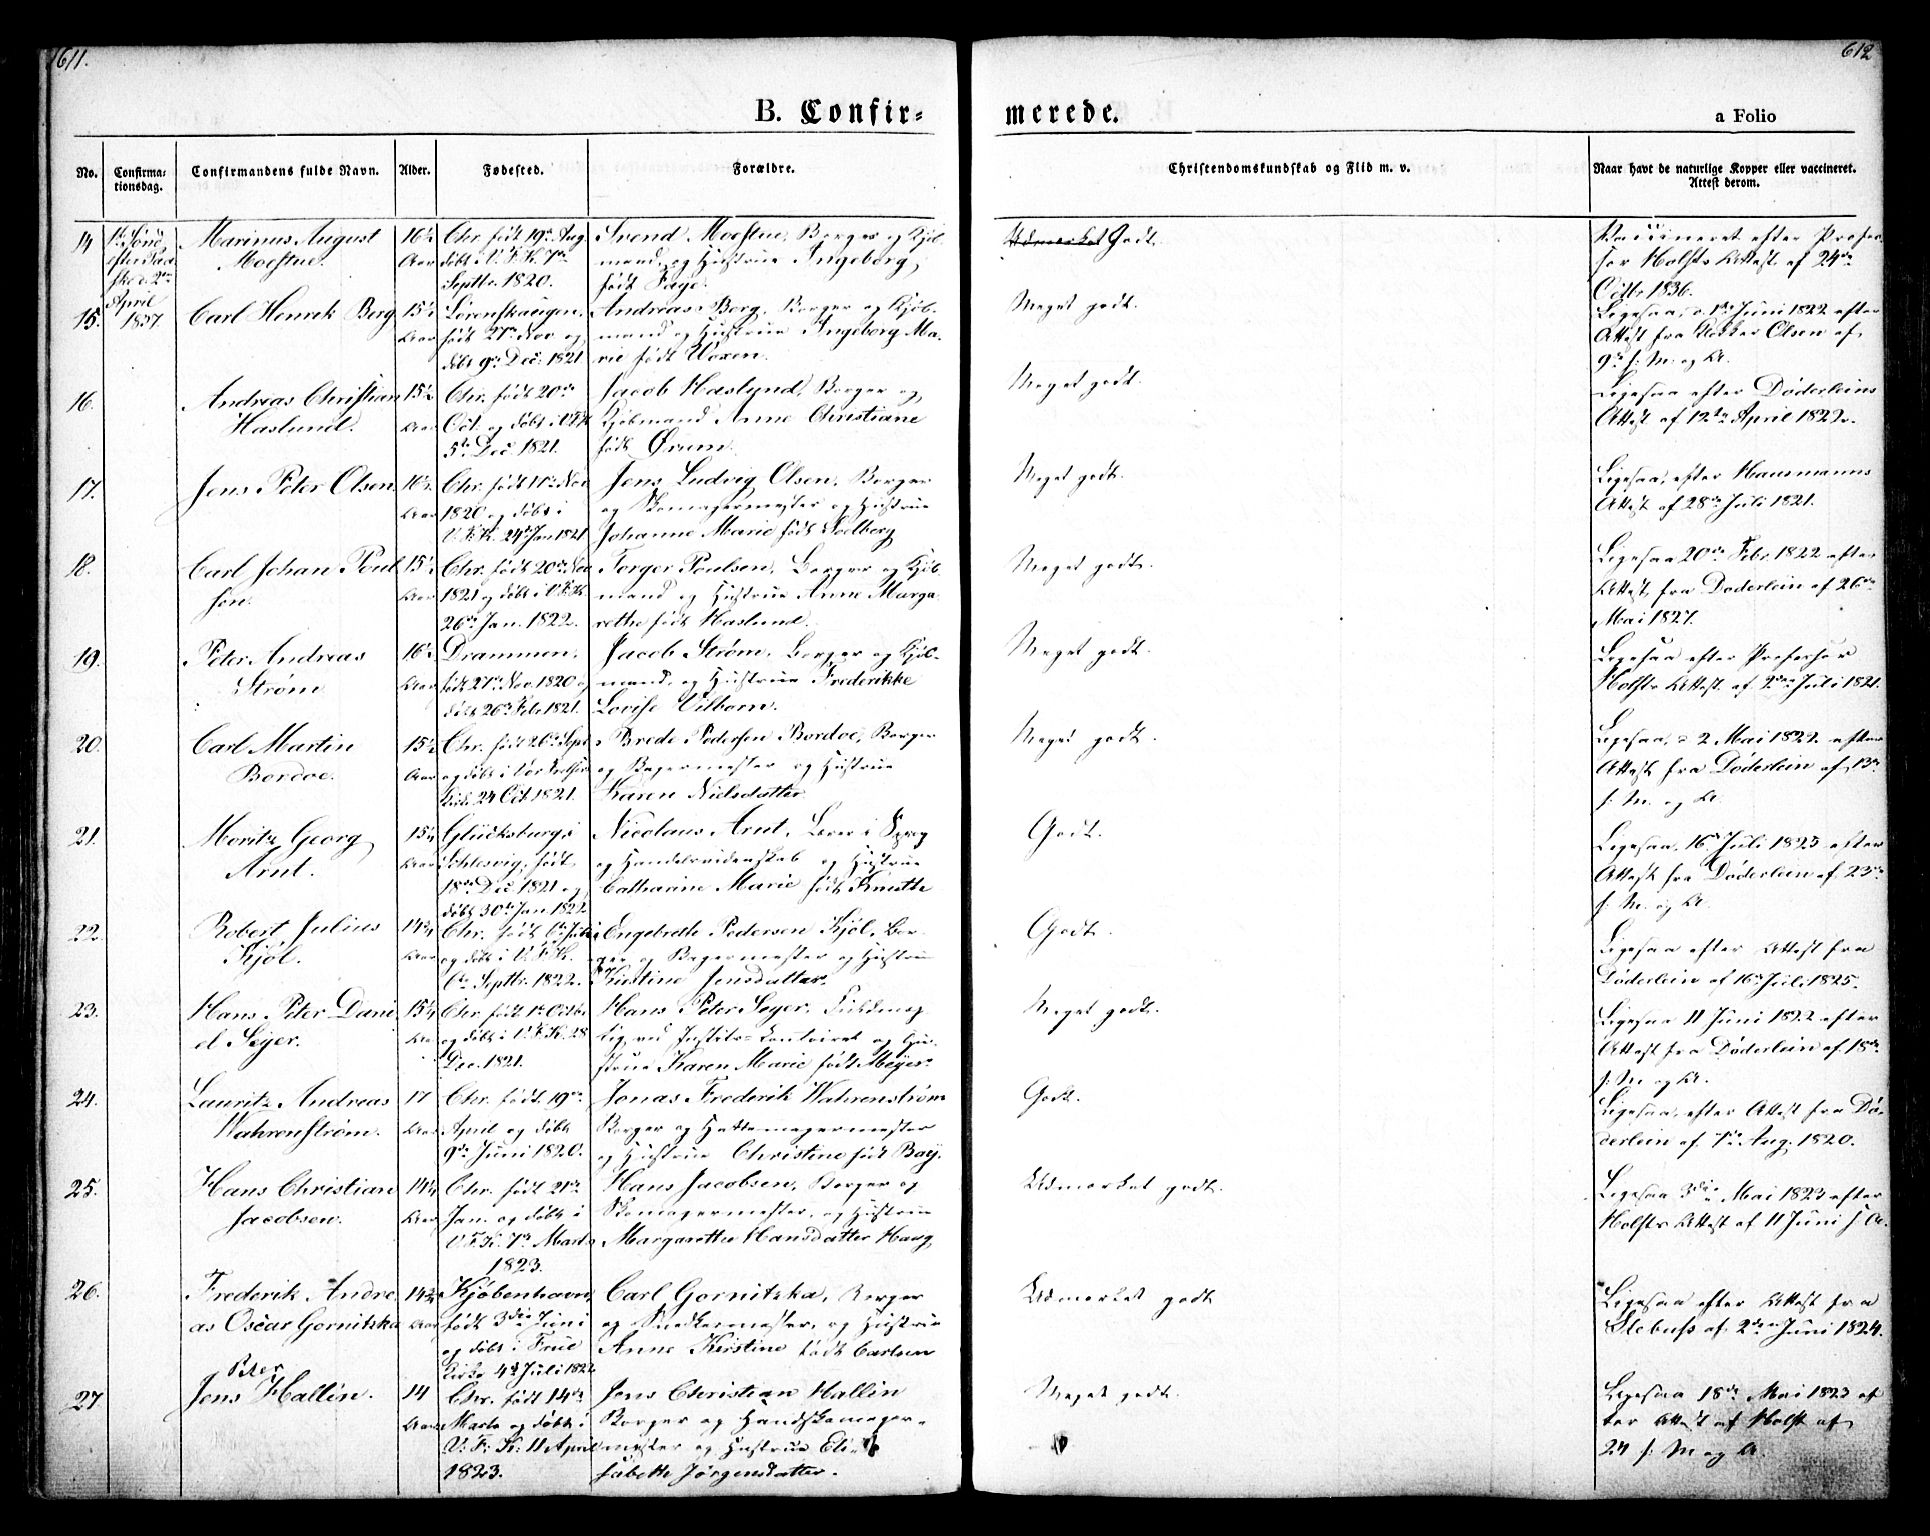 611.
612
B. Confir=
merede.
a Folio
No.
Confirma-
tionsdag.
Confirmandens fulde Navn.
Alder.
Fødested.
Forældre.
Christendomskundskab og Flid m. v.
Naar havt de naturlige Kopper eller vaccineret.
Attest derom.
14
1ste Sønd.
efter Paa-
ske d. 2den
April
1837.
Marinus August
Moestue.
16½
Aar
Chr. født 19de Aug.
døbt i V. F. K. 7de
Septbr. 1820.
Svend Moestue, Borger og Kjøb-
mand, og Hustrue Ingeborg
født Fage.
Udmærket Godt.
Vaccineret efter Profes-
sor Holsts Attest af 24de
Octbr 1836.
15.
Carl Henrik Berg
15½
Aar
Sørenskaugen.
født 27de Nov og
døbt 9de Dec. 1821.
Andreas Berg, Borger og Kjøb-
mand og Hustrue Ingeborg Ma-
rie født Uoxen.
Meget godt.
Ligesaa, d. 1ste Juni 1822 efter
Attest fra Klokker Olsen af
9de s. M. og A.
16.
Andreas Christian
Haslund.
15½
Aar
Chr. født 20de
Oct. og døbt i V.F.K.
5te Dec. 1821.
Jacob Haslund, Borger og
Kjøbmand Anne Christiane
født Ørum.
Meget godt.
Ligesaa efter Døderleins
Attest af 12te April 1822.
17.
Jens Peter Olsen.
16½
Aar
Chr. født 11te Nov
1820 og døbt i
V. F. K. 24de Jan 1821
Jens Ludvig Olsen, Borger
og Skomagermester og Hustrue
Johanne Marie født Soelberg
Meget godt.
Ligesaa, efter Hansmanns
Attest af 28de Juli 1821.
18.
Carl Johan Poul
sen.
15½
Aar
Chr. født 20de Nov
1821 og døbt i V.F.K.
26de Jan. 1822.
Torger Poulsen, Borger og Kjøb-
mand og Hustrue Anne Marga
rethe født Haslund.
Meget godt.
Ligesaa 20de Febr. 1822 efter
Attest fra Døderlein af 26de
Mai 1827.
19.
Peter Andreas
Strøm
16½
Aar
Drammen.
født 27de Nov. 1820 og
døbt 26de Febr 1821.
Jacob Strøm, Borger og Kjøb-
mand, og Hustrue Frederikke
Lovise Vilborn.
Meget godt.
Ligesaa efter Professor
Holsts Attest af 2den Juli 1821.
20.
Carl Martin
Bordoe.
15½
Aar
Chr. født 26de Sept
og døbt i Vor Frelsers
Kirke 24 Oct. 1821.
Brede Pedersen Bordoe, Borger
og Bagermester og Hustrue
Karen Nielsdatter.
Meget godt.
Ligesaa, d 2 Mai 1822 efter
Attest fra Døderlein af 13de
s. M. og A.
21.
Moritz Georg
Arnt.
15¼
Aar
Glücksburg i
Schlesvig, født
18de Dec 1821 og
døbt 30te Jan. 1822
Nicolaus Arnt, Lærer i Sprog
og Handelsvidenskab og Hustrue
Catharine Marie født Knutte
Godt.
Ligesaa, 16de Juli 1823 efter
Attest fra Døderlein af 23de
s. M. og A.
22.
Robert Julius
Kjøl.
14¾
Aar
Chr. født 6te Juli
og døbt i V. F. K.
6te Septbr. 1822.
Engebrethe Pedersen Kjøl, Bor-
ger og Bagermester og Hustrue
Kirstine Jensdatter.
Godt.
Ligesaa efter Attest fra
Døderlein af 16de Juli 1825.
23.
Hans Peter Dani
el Seyer.
15½
Aar
Chr. født 1ste Octbr.
og døbt i V. F. K. 28
Dec. 1821.
Hans Peter Seyer, Fuldmæg
tig ved Justits-Contoiret og Hu-
strue Karen Marie født Meyer.
Meget godt.
Ligesaa 11 Juni 1822 efter
Attest fra Døderlein af 18de
s. M og A.
24.
Lauritz Andreas
Wahrenstrøm.
17
Aar
Chr. født 19de
April og døbt
9de Juni 1820.
Jonas Frederik Wahrenstrøm
Borger og Hattemagermester
og Hustrue Christine født Bay.
Godt.
Ligesaa, efter Attest fra Dø-
derlein af 7de Aug. 1820.
25.
Hans Christian
Jacobsen.
14¼
Aar
Chr. født 21de
Jan. og døbt i
V. F. K. 7de Marts
1823.
Hans Jacobsen, Borger og
Skomagermester, og Hustrue
Margarethe Hansdatter Haug
Udmærket godt.
Ligesaa 3die Mai 1823 efter
Holsts Attest af 11 Juni s. A.
26.
Frederik Andre
as Oscar Gornitzka
14¾
Aar
Kjøbenhavn,
født 3die Juni
og døbt i Frue
Kirke 4de Juli 1822
Carl Gornitzka, Borger
og Snedkermester, og Hustrue
Anne Kirstine født Carlsen
Udmærket godt
Ligesaa efter Attest fra
Stebuss af 2den Juni 1824.
27
Peter
Jens Hallin.
14
Aar
Chr. født 14de
Marts og døbt i
V. F. K. 11 April
1823.
Jens Christian Hallin
Borger og Handskemager-
mester og Hustrue Eli-
sabeth Jørgensdatter.
Meget godt.
Ligesaa 18de Mai 1823 ef
ter Attest af Holst af
24 s. M og A.